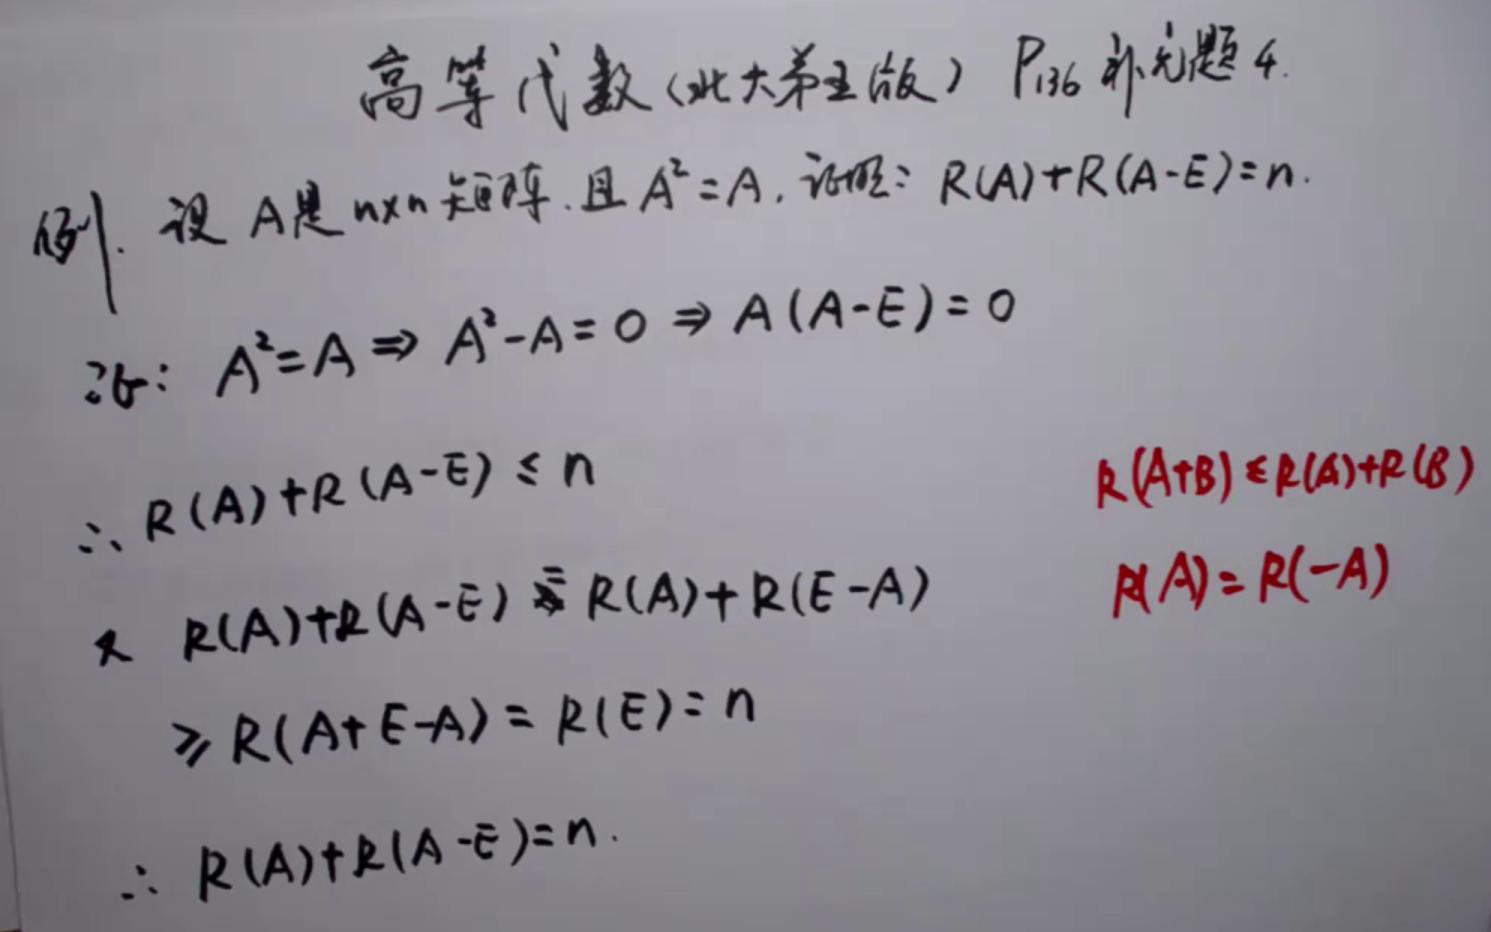 高等代数(北大第五版) P136 补充题4.
例. 设A是n×n矩阵.且A²=A,证明: R(A)+R(A-E)=n.
证: A²=A ⇒ A²-A=0 ⇒ A(A-E)=0
∴ R(A)+R(A-E)≤n
R(A+B)≤R(A)+R(B)
又 R(A)+R(A-E) = R(A)+R(E-A)
R(A)=R(-A)
≥R(A+E-A)=R(E)=n
∴ R(A)+R(A-E)=n.